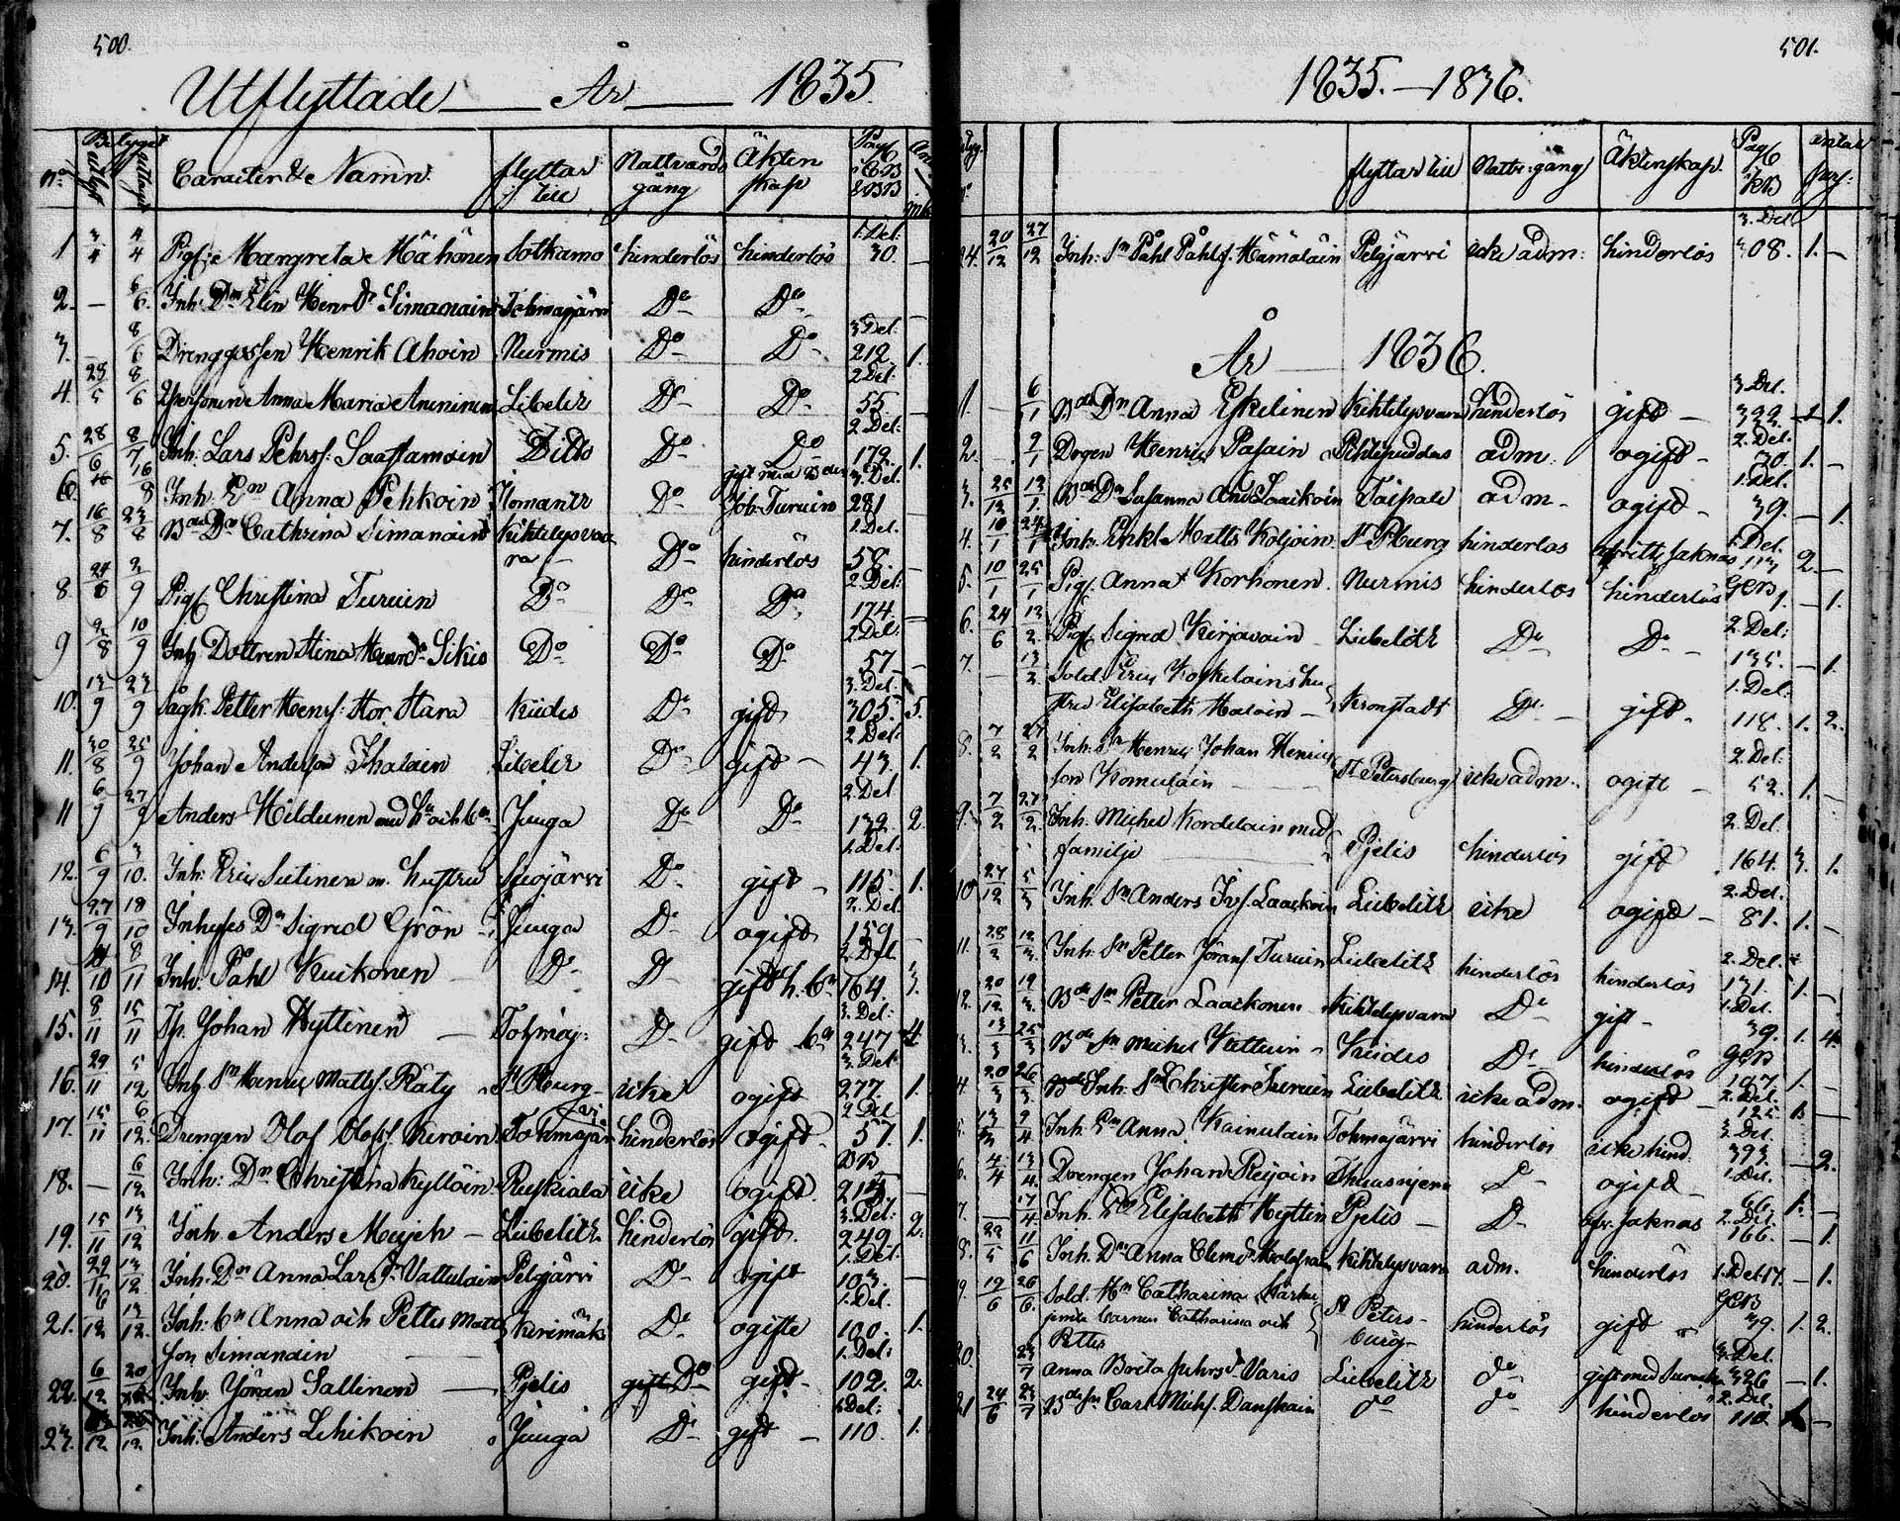 500.
Utflyttade År 1835.
No Betyget utlagt antaget Caracter & Namn. flyttar till Nattvards gång Äkten skap Pag. CB
1 3/4 4/4 Pig. Margreta Mähönen Sotkamo hinderlös hinderlös 1. Del: 30. —
2. — 6/6. Inh. Dn Elin Henrdr Simanain Tohmajärvi Do Do —
3. — 8/6 Drenggossen Henrik Ahoin Nurmis Do Do 3 Del. 212. 1.
4. 28/5 8/6 Anna Maria Libelitz Do Do 2 Del: 55. —
5. 28/6 8/7 Inh: Lars Pehrs: Saastamoin Ditto Do Do 2. Del: 179. 1.
6. 16/8 Inh. En Anna Pehkoin Ilomantz Do gift med Job Turuin 3. Del. 281 —
7. 16/8 23/8 Bde Dr Cathrina Simanain Kihtelysvaa
ra — Do hinderlös 1. Del. 58. —
8. 2/9 Pig. Christina Turuin Do Do Do 2 Del: 174. —
9 10/9 Inh Dottren Stina Henrdr Sikio Do Do Do 2 Del: 57 —
10. 13/9 23/9 Petter Kiides Do gift 3. Del. 305. 5.
11. 30/8 25/9 Johan Andersson Ihalain Libelitz Do gift — 2 Del: 43. 1.
11 6/9 27/9 Anders Hildunen med Hu och bn Juuga Do Do 2. Del 132. 2.
12. 6/9 3/10. Inh: Eric Sutinen m. hustru Suojärvi Do gift — 1. Del: 115. 1.
13. 27/9 18/10 Inhyses Dr Sigred Grön Juuga Do ogift 2. Del. 159 —
14. 10 8/11 Inh: Påhl Kuikonen Do D gift h. bn 2 Del. 164. 3.
15. 8/11 15/11 Tp. Johan Hyttinen — Tohmaj: Do gift bn 3. Del: 247 4
16. 29/11 5/12 Inh Sn Henric Matts. Räty St Pburg icke ogift 3. Del: 277. 1.
17. 15/11 6/12. Drengen Olof Olofs. Keroin Tohmajärvi hinderlös ogift 2 Del 57. 1.
18. — 6/12. Inh: Dn Christina Kylläin Ruskiala icke ogift. —
19. 15/11 13/12 Inh. Anders Mujeh — Libelitz hinderlös gift. 3. Del: 249. 2.
20. 29/11 13/12 Inh: Dn Anna Larsdr Vattulain Pelgjärvi Do ogift 1. Del. 103. —
21. 6/12 13/12. Inh: bn Anna och Petter Matts
son Simanain Kerimäki Do ogifte 1. Del. 100. 1.
22. 6/12 20/12 Inh: Jöran Sallinen — Pjelis Do gift 1. Del: 102. 2.
23. 12 12 Inh: Anders Lehikoin Juuga Do gift — Del: 110. 1.
501.
1835. — 1836.
flyttar till Nattv: gång Äktenskap. Pag KB antal pers:
24. 20/12 27/12 Inh: Sn Påhl Påhls. Hämäläin Pelgjärvi icke adm: hinderlös 3. Del 308. 1. —
År 1836.
1. — 6/1 Bde Dn Anna Eskelinen Kihtelysvara hinderlös gift — 3. Del. 392. 1.
2. — 9/1 Drgen Henric Pasain Pihtipudas adm. ogift — 2. Del. 30. 1. —
3. 25/12 13/1. Bde Dn Susanna Laackoin Taipale adm — ogift — 1. Del. 39. — 1.
4. 10/1 24/1 Inh. Enkl. Matts Koljoin. St Pburg hinderlös afvitt: saknas 1. Del. 113 2. —
5. 10/1 25/1 Pig. Anna Korhonen. Nurmis hinderlös hinderlös GCB 1. — 1.
6. 24/6 13/2. Pig. Sigred Kirjavain Liebelitz Do Do — 2. Del: 135. — 1.
7. — 13/2. Sold. Eric Koskelains hu
stru Elisabeth Kronstadt Do — gift. 1. Del. 118. 1. 2.
8. 7/2 27/2 Inh: Sn Henric Johan Henric
son Komulain St Petersburg icke adm. ogift — 2. Del: 52. 1. —
9. 7/2 27/2. Inh. Michel Kordelain med
familje Pjelis hinderlös gift 2. Del. 164. 3. 1.
10 27/12 5/3 Inh. Sn Anders Laackoin Liebelitz icke ogift — 2. Del. 81. 1. —
11. 28/2 12/3. Inh. Sn Petter Jörans. Turuin Liebelitz hinderlös hinderlös 2. Del. 131. 1. —
12. 20/12 19/3. Bde Sn Petter Laackonen Kihtelysvara Do gift — 1. Del. 39. 1. 4.
3. 13/3 25/3 Bde Sn Michel Kiides Do hinderlös GCB 1. —
4. 20/3 26/3 Bde Inh. Sn Christer Turuin Liebelitz icke adm. ogift — 2. Del. 125 1. —
5. 9/4 Inh. En Anna Kainulain Tohmajärvi hinderlös icke hind. 3. Del. 393 — 2.
6. 4/4 13/4. Drengen Johan Reijoin Do — ogift — 1. Del. 66. 1. —
7. — 17/4 Inh. Elisabeth Hyttin Pjelis — D — saknas 2. Del. 166. — 1.
8. 22/5 11/6 Inh. Dn Anna Clemdr Kihtelysvara adm. hinderlös 1. Del. 17. — 1.
9. 19/6 26/6. Sold. Hn Catharina
jemte barnen Catharina och
Petter St Peters-
burg — hinderlös gift GCB 39. 1. 2.
20. 23/7 Anna Brita Varis Liebelitz do gift med 3. Del. 326 — 1.
21 24/6 23/7 Bde Sn Carl Michs. Danskain do do hinderlös 2. Del. 110. —